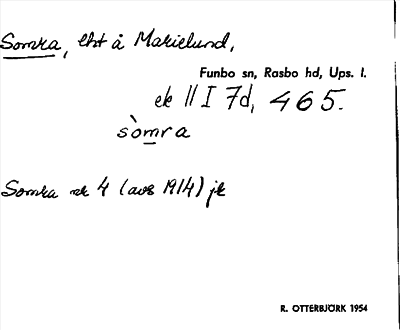 Somra, lht å Marielund,
Funbo sn, Rasbo hd, Ups. l.
ek 11 I 7d, 465.
sòmra
Somra rk 4 (avs 1914) jk